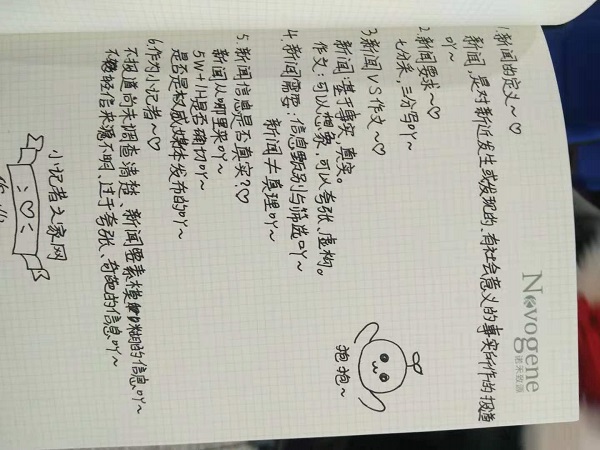 Novogene
诺禾致源
1.新闻的定义~♡
新闻,是对新近发生或发现的、有社会意义的事实所作的报道
吖~
2.新闻要求~♡
七分采,三分写吖~
3.新闻VS作文~♡
新闻:基于事实,真实。
作文:可以想象,可以夸张、虚构。
4.新闻需要:信息甄别与筛选吖~
新闻≠真理吖~
5.新闻信息是否真实?♡
新闻从哪里来吖~
5W+1H是否确切吖~
是否是权威媒体发布的吖~
6.作为小记者~♡
不报道尚未调查清楚、新闻要素模糊的信息吖~
不轻信来源不明、过于夸张、奇葩的信息吖~
抱抱~
小记者之家网